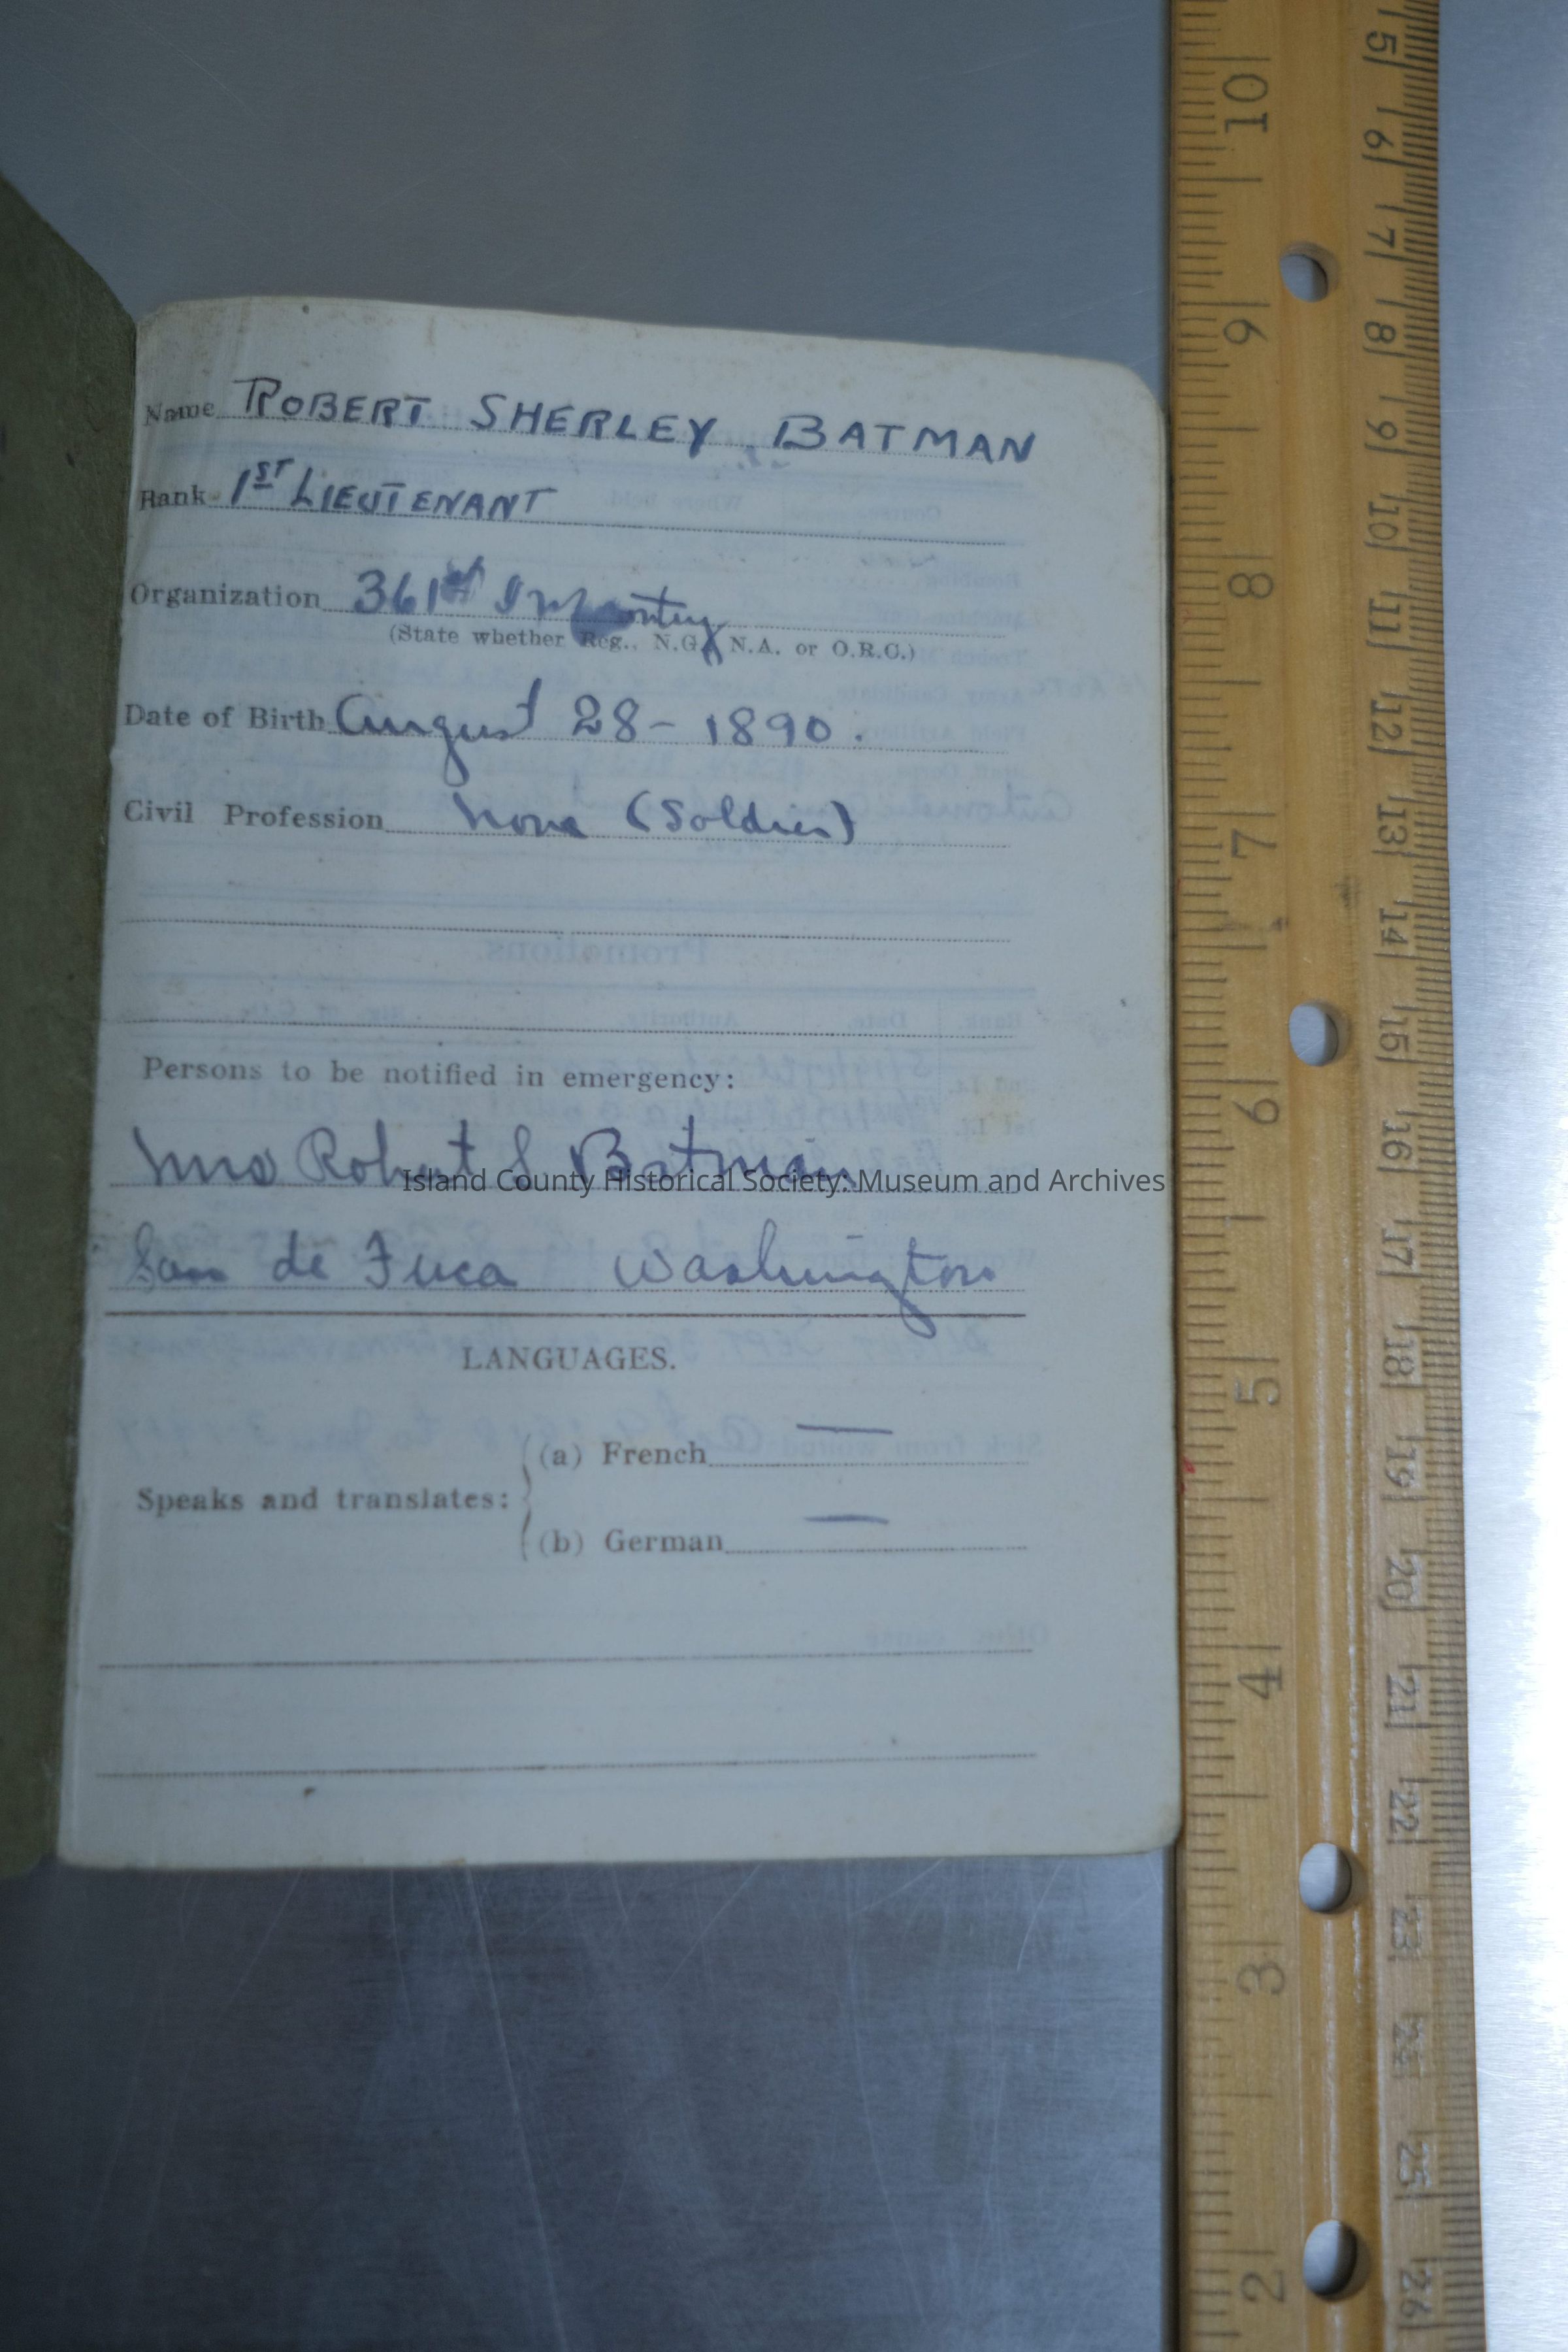 Name ROBERT SHERLEY BATMAN
Rank 1ST LIEUTENANT
Organization 361st Infantry
(State whether Reg., N.G., N.A. or O.R.C.)
Date of Birth August 28 - 1890.
Civil Profession None (Soldier)
Persons to be notified in emergency:
Mrs Robert S. Batman
Island County Historical Society: Museum and Archives
San de Fuca Washington
LANGUAGES.
Speaks and translates:
(a) French —
(b) German —
Promotions.
Rank. Date. Authority.
10
9
8
7
6
5
4
3
2
5
6
7
8
9
10
11
12
13
14
15
16
17
18
19
20
21
22
23
24
25
26